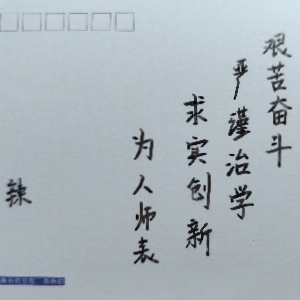 艰苦奋斗
严谨治学
求实创新
为人师表